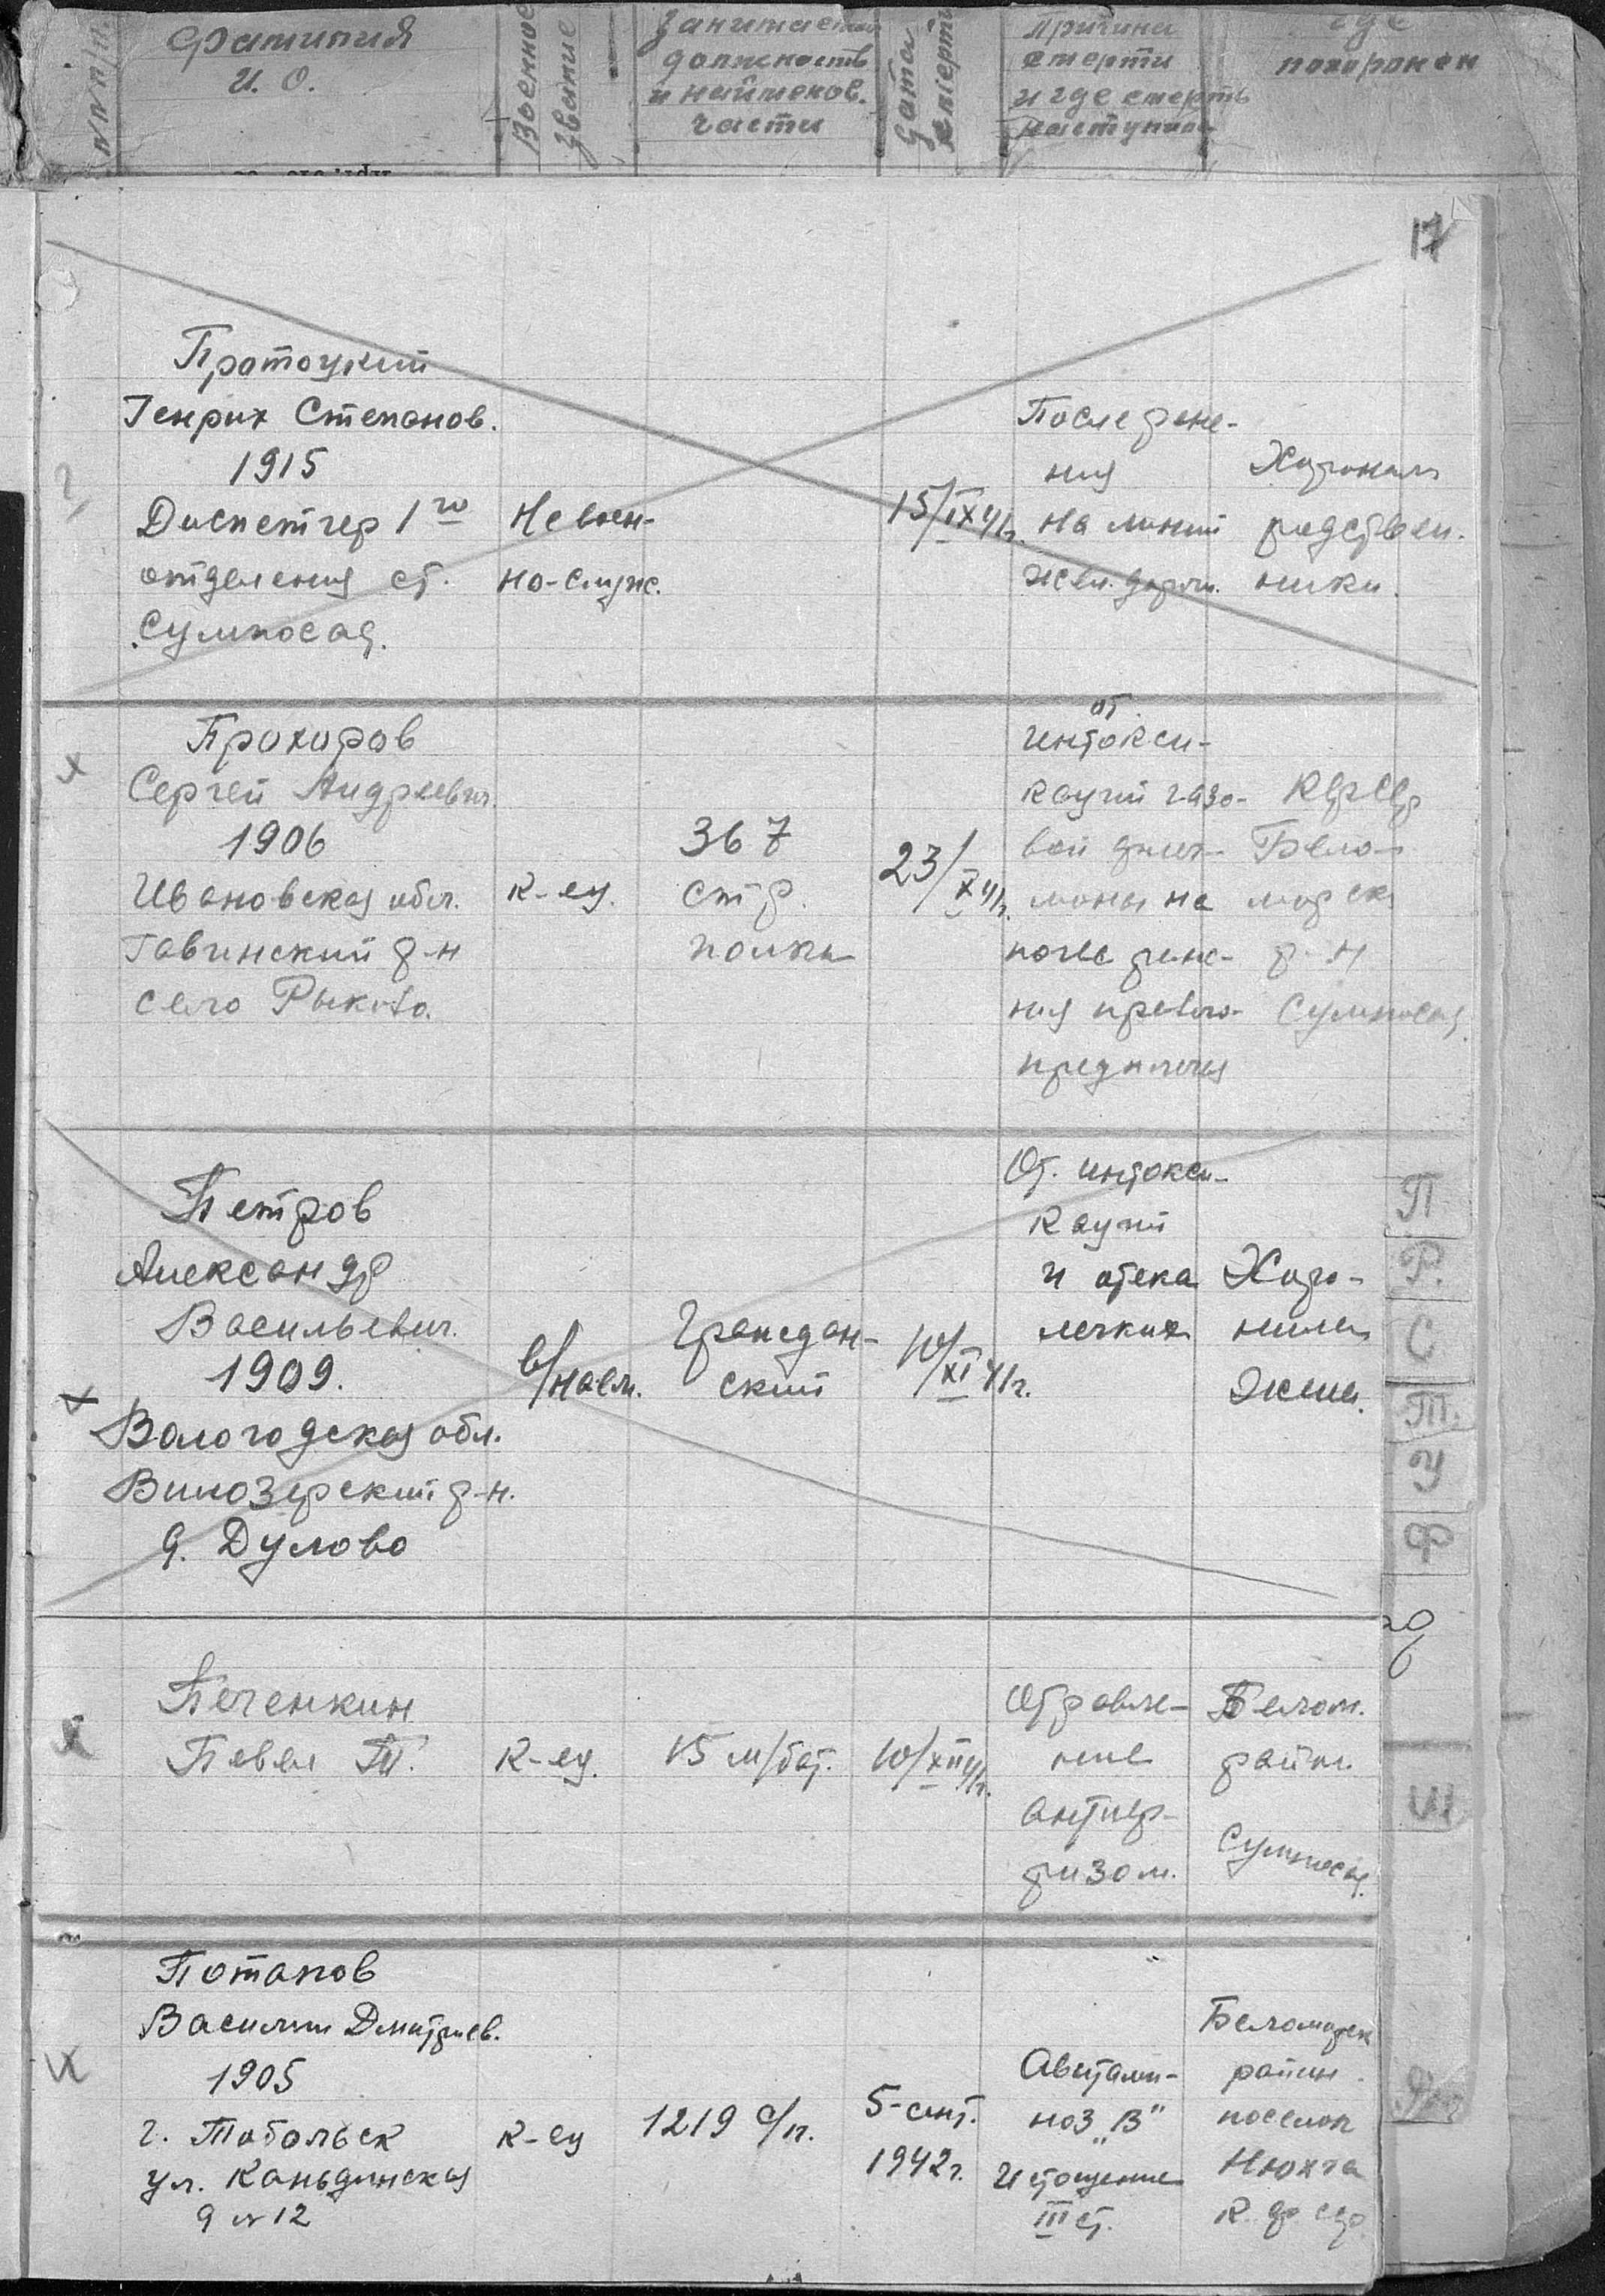 №№ п/п.
Фамилия
И. О.
Военное
звание
Занимаемая
должность
и наименов.
части
Дата
смерти
Причина
смерти
и где смерть
наступила
где
похоронен
17
Протоцкий
Генрих Степанов.
1915
Диспетчер 1го
отделения ст.
Сумпосад.
Не воен-
но-служ.
15/IX 41г.
После ране-
ния
на линии
жел. дороги.
Хоронили
родствен.
ники.
Прохоров
Сергей Андреевич
1906
Ивановская обл.
Гавинский р-н
село Рыково.
к-ец.
367
стр.
полка
23/X 41г.
от
интокси-
кации газо-
вой флег-
моны на
почве ране-
ния правого
предплечья
КФССР
Бело-
морск
р-н
Сумпосад.
Петров
Александр
Васильевич.
1909.
Вологодская обл.
Билозерский р-н.
д. Дулово
в/наем.
Граждан-
ский
10/XI 41г.
От интокси-
кации
и отека
легких
Хоро-
нила
жена.
Печенкин
Павел Т.
к-ец.
15 м/бат.
10/XII 41г.
Отравле-
ние
антиф-
ризом.
Белом.
район
Сумпосад.
Потапов
Василий Дмитриев.
1905
г. Тобольск
ул. Каньдинская
д № 12
к-ец
1219 с/п.
5-сент.
1942г.
Авитами-
ноз „В"
Истощение
III ст.
Беломорск
район
поселок
Нюхча
К. ф. сср.
П
Р.
С
Т.
У
Ф
Ш